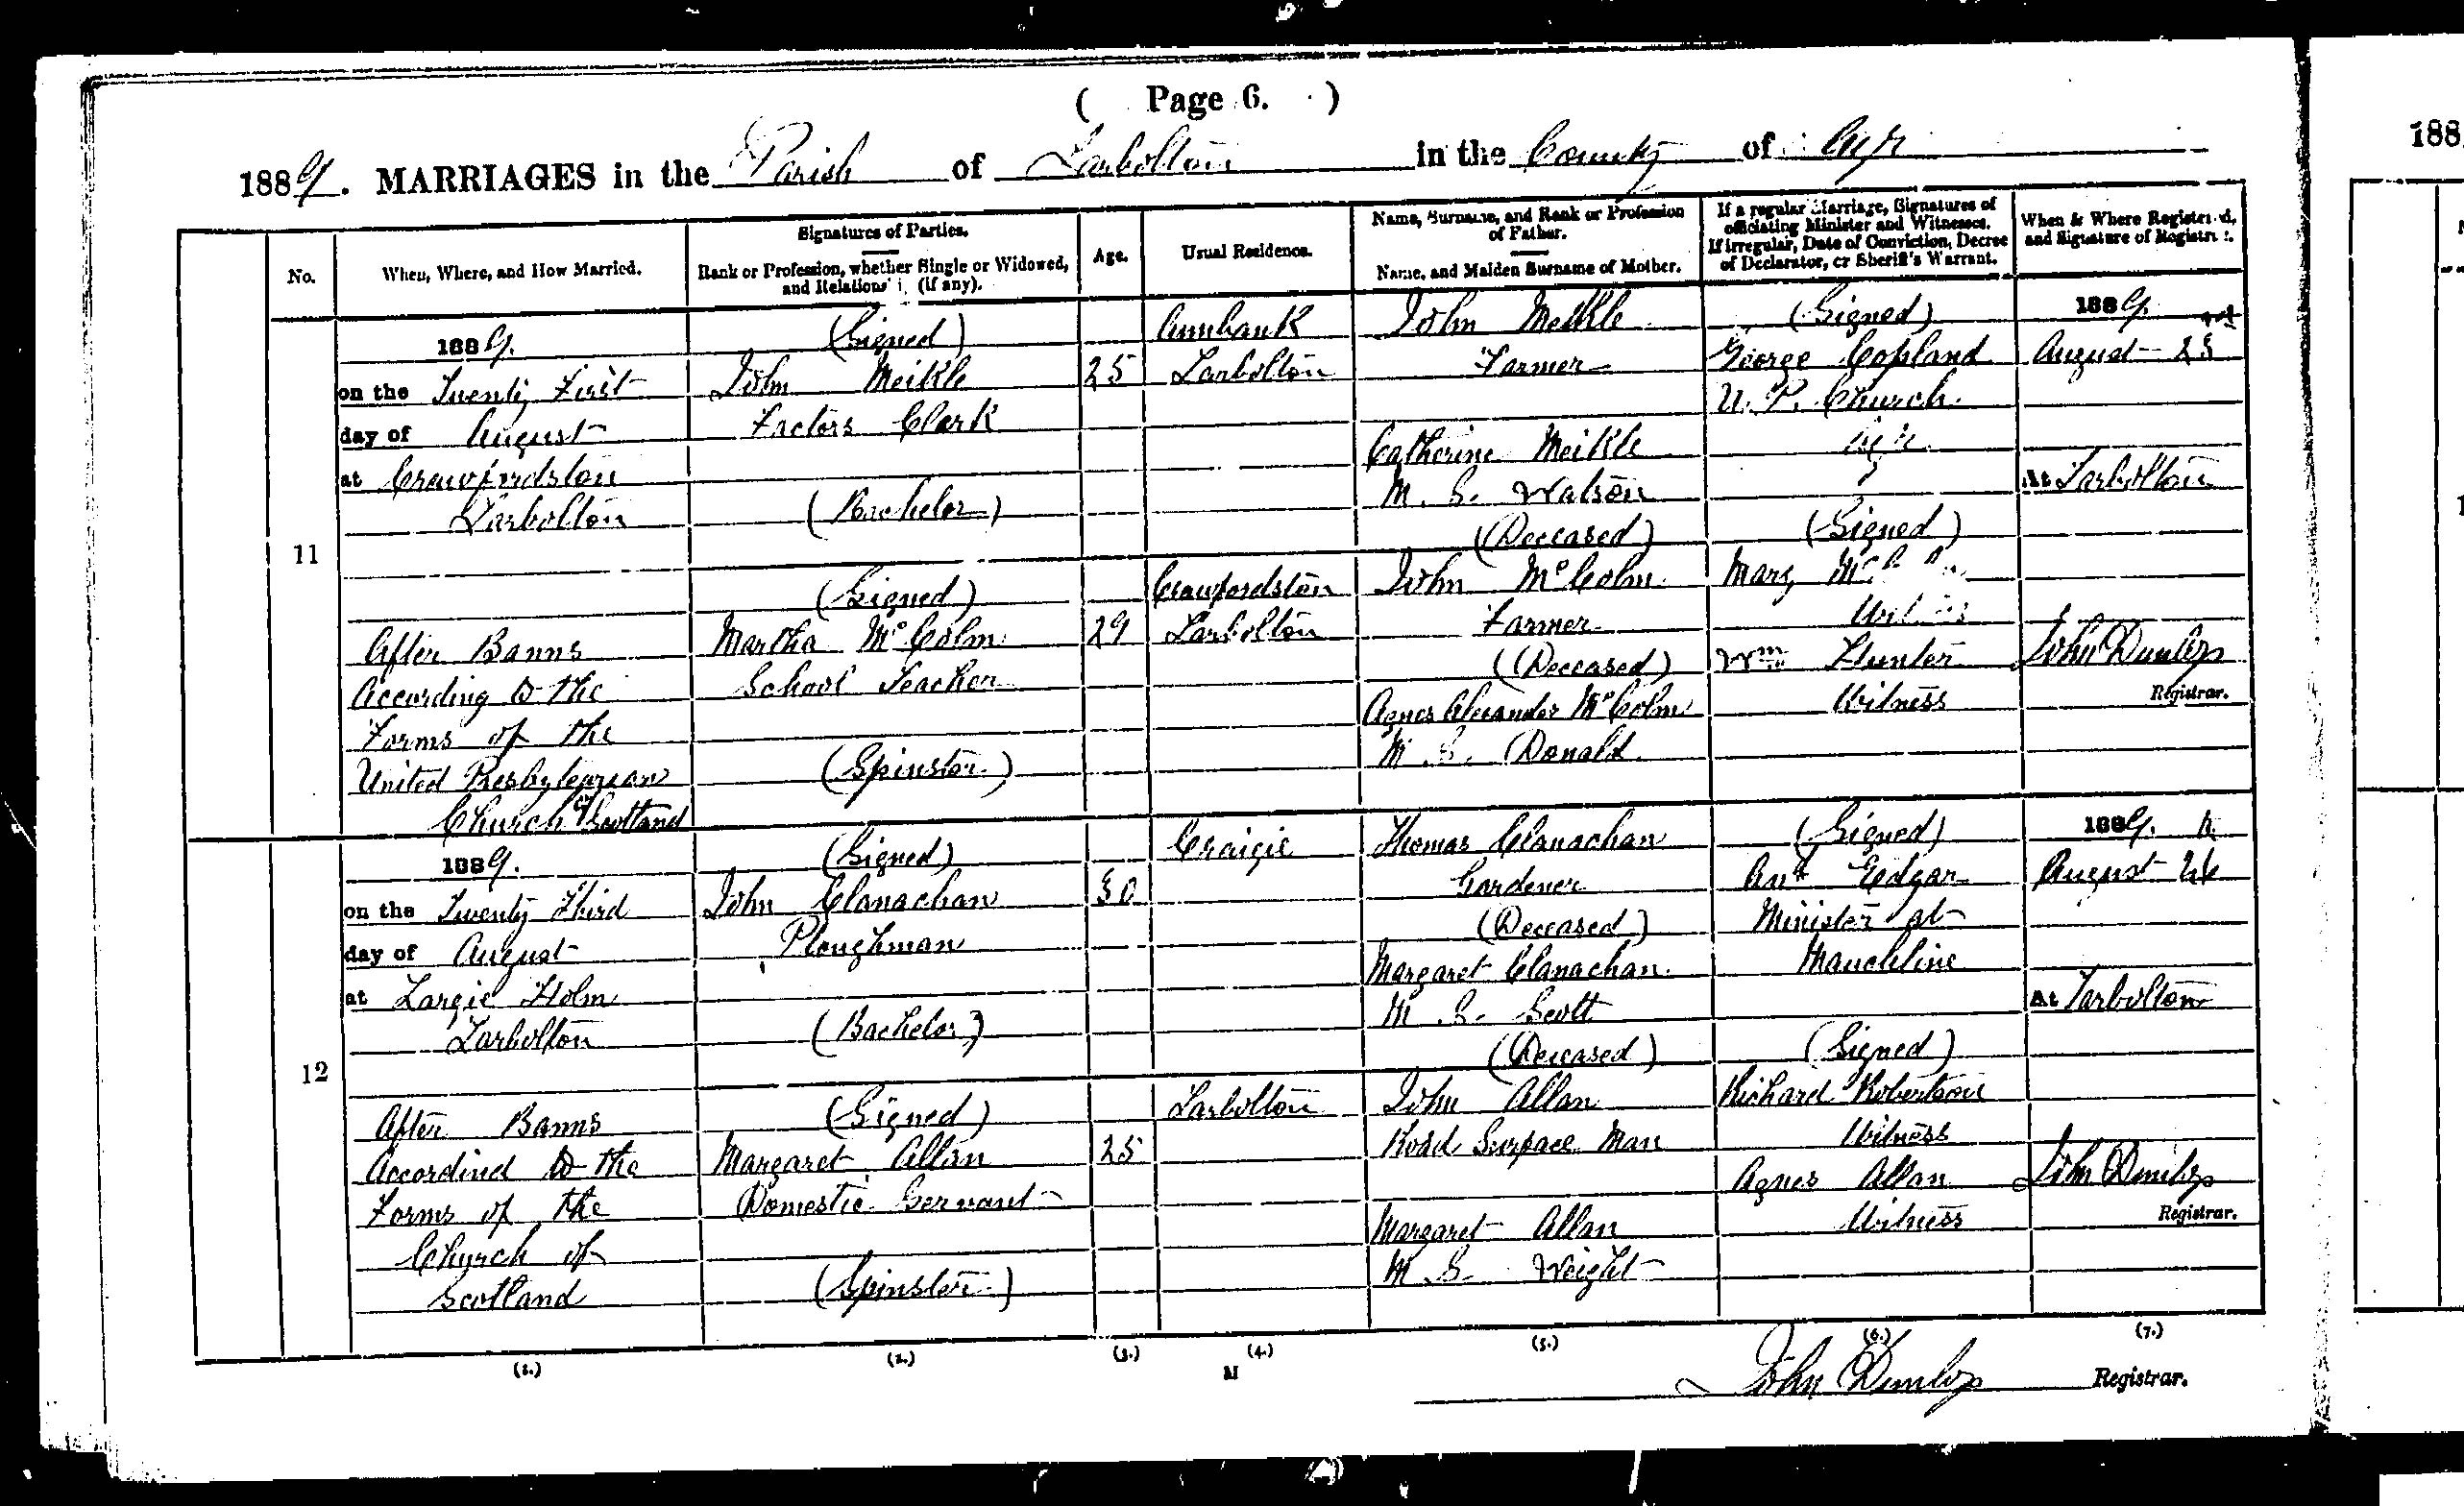 ( Page 6. )
1889. MARRIAGES in the Parish of Tarbolton in the County of Ayr
188
No.
When, Where, and How Married.
Signatures of Parties.
Rank or Profession, whether Single or Widowed,
and Relations (if any).
Age.
Usual Residence.
Name, Surname, and Rank or Profession
of Father.
Name, and Maiden Surname of Mother.
If a regular Marriage, Signatures of
officiating Minister and Witnesses.
If irregular, Date of Conviction, Decree
of Declarator, or Sheriff's Warrant.
When & Where Registered,
and Signature of Registrar.
11
1889.
on the Twenty First
day of August
at Crawfordston
Tarbolton
After Banns
According to the
Forms of the
United Presbyterian
Church of Scotland
(Signed)
John Meikle
Factors Clerk
(Bachelor)
(Signed)
Martha McColm
School Teacher
(Spinster)
25
29
Annbank
Tarbolton
Crawfordston
Tarbolton
John Meikle
Farmer
Catherine Meikle
M. S. Watson
(Deceased)
John McColm
Farmer
(Deceased)
Agnes Alexander McColm
M. S. Donald
(Signed)
George Copland
U. P. Church
Ayr
(Signed)
Mary
Witness
Wm Hunter
Witness
1889.
August 23rd
At Tarbolton
John Dunlop
Registrar.
12
1889.
on the Twenty Third
day of August
at Largie Holm
Tarbolton
After Banns
Accordind to the
Forms of the
Church of
Scotland
(Signed)
John Clanachan
Ploughman
(Bachelor)
(Signed)
Margaret Allan
Domestic Servant
(Spinster)
30
25
Craigie
Tarbolton
Thomas Clanachan
Gardener
(Deceased)
Margaret Clanachan
M. S. Scott
(Deceased)
John Allan
Road Surface Man
Margaret Allan
M. S. Weight
(Signed)
Edgar
Minister at
Mauchline
(Signed)
Richard Robertson
Witness
Agnes Allan
Witness
1889.
August 26
At Tarbolton
John Dunlop
Registrar.
(1.) (2.) (3.) (4.) (5.) (6.) (7.)
M
John Dunlop Registrar.